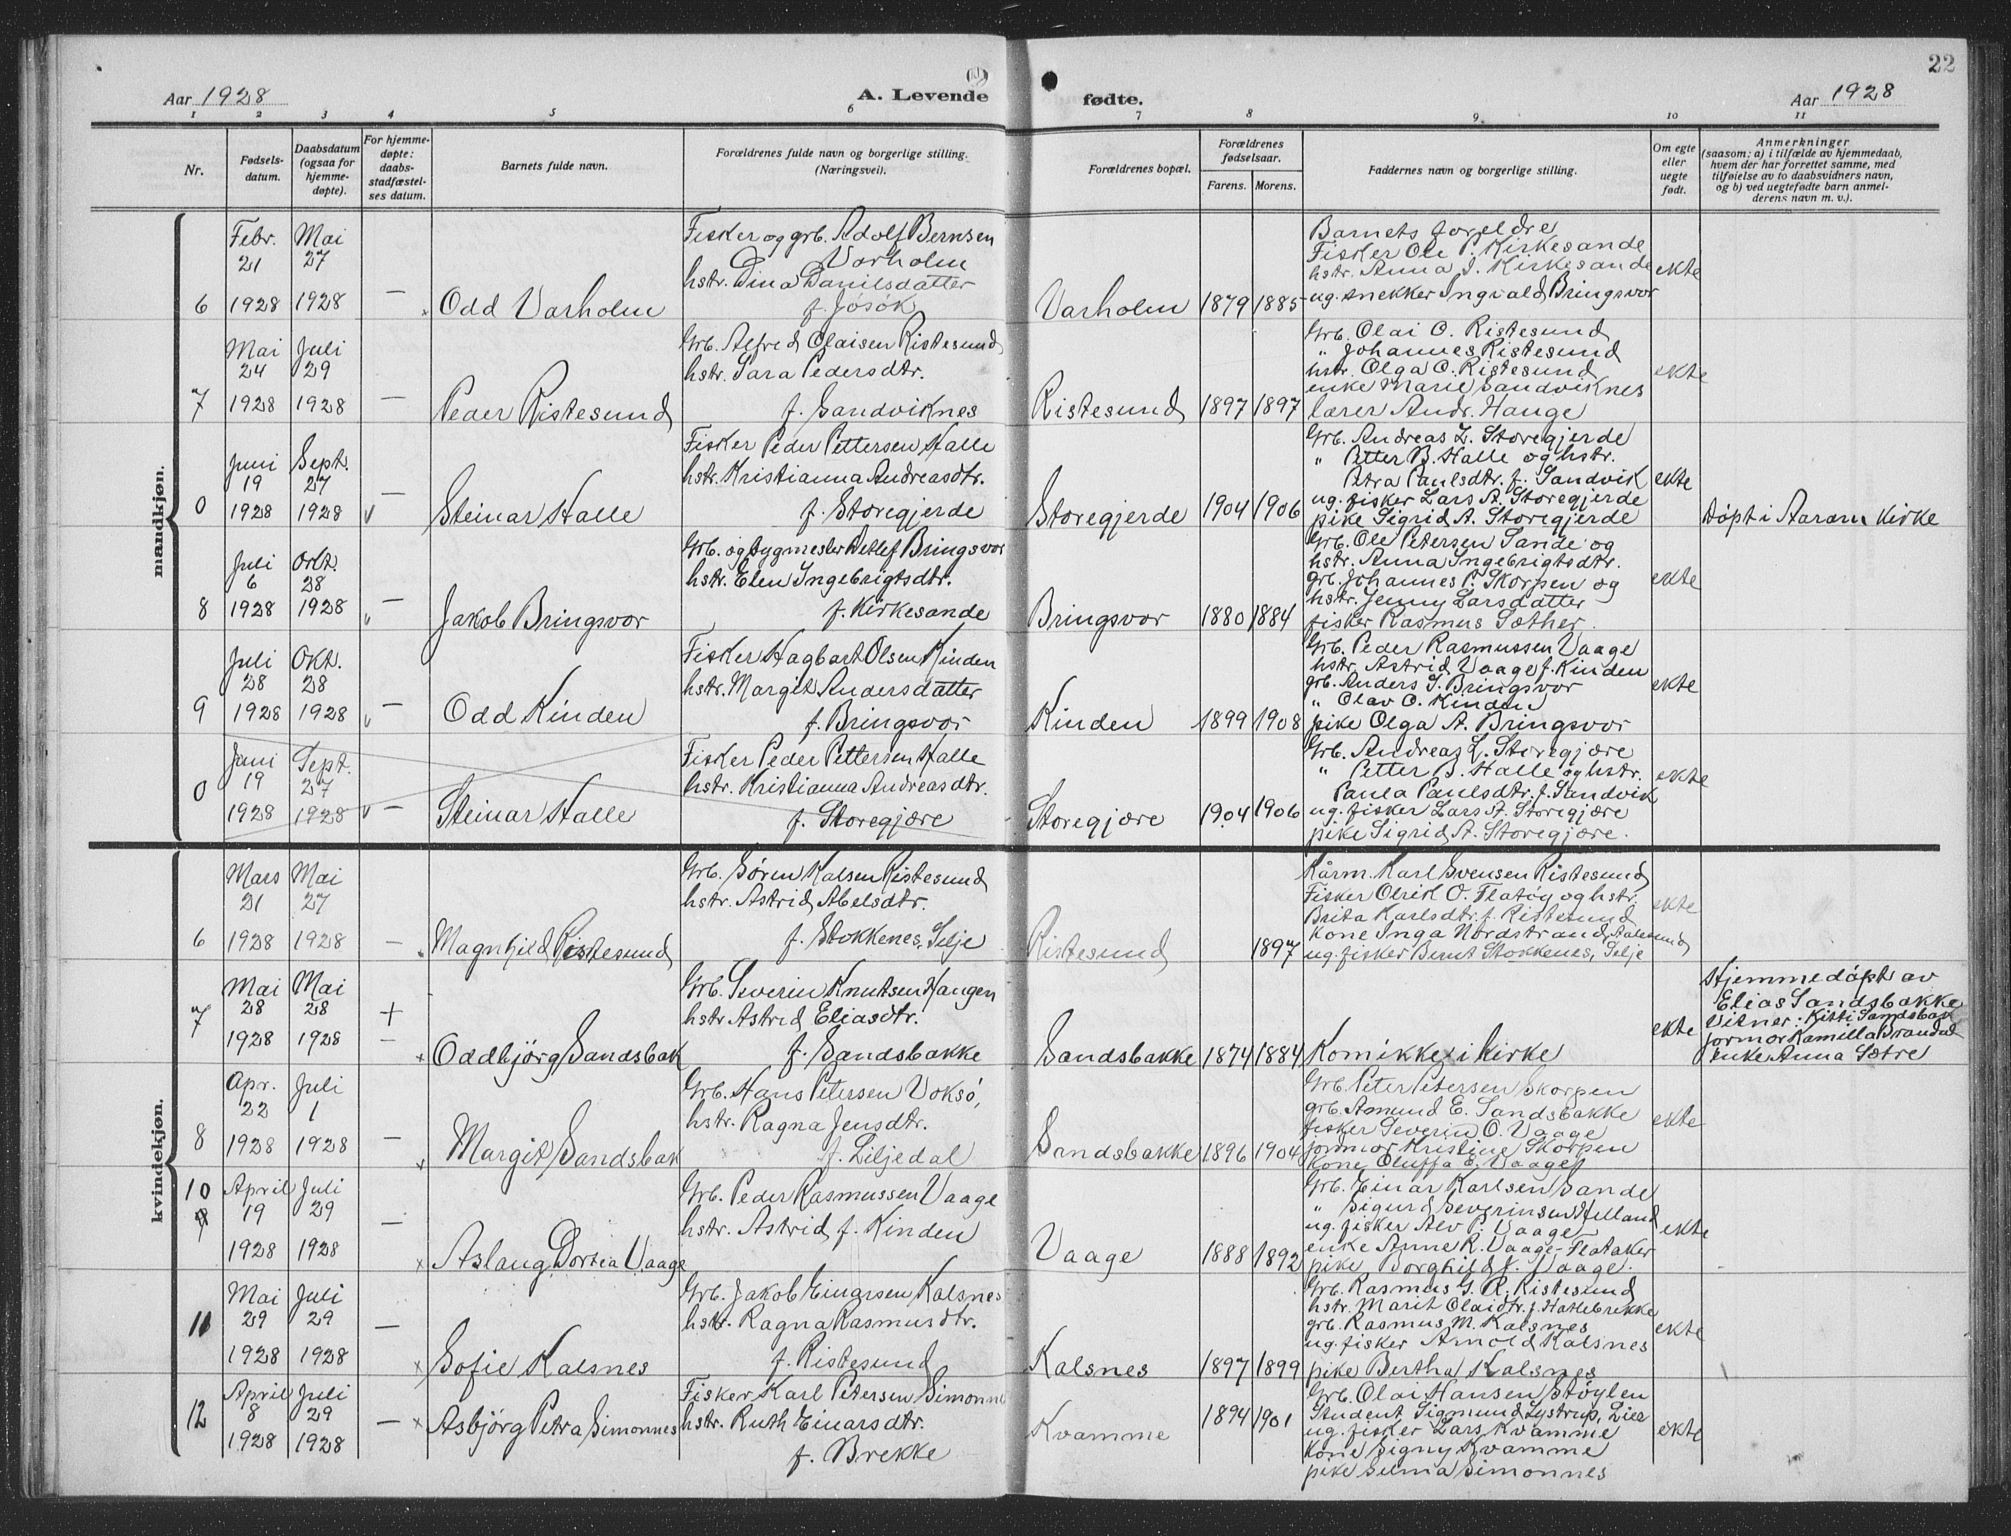 22
Aar 1928
A. Levende
fødte.
Aar 1928
1 2 3 4 5 6 7 8 9 10 11
Nr.
Fødsels-
datum.
Daabsdatum
(ogsaa for
hjemme-
døpte).
For hjemme-
døpte:
daabs-
stadfæstel-
ses datum.
Barnets fulde navn.
Forældrenes fulde navn og borgerlige stilling.
(Næringsvei).
Forældrenes bopæl.
Forældrenes
fødselsaar.
Farens. Morens.
Faddernes navn og borgerlige stilling.
Om egte
eller
uegte
født.
Anmerkninger
(saasom: a) i tilfælde av hjemmedaab,
hvem der har forrettet samme, med
tilføielse av to daabsvidners navn,
og b) ved uegtefødte barn anmel-
derens navn m. v.).
mandkjøn.
6
Febr.
21
1928
Mai
27
1928
—
Odd Varholm
Fisker og grb. Adolf Bernsen
Varholm
hstr. Dina Danilsdatter
f. Jøsøk
Varholm
1879 1885
Barnets foreldre
Fisker Ole P. Kirkesande
hstr. Anna J. Kirkesande
ug. snekker Ingvald Bringsvor
ekte
7
Mai
24
1928
Juli
29
1928
—
Peder Ristesund
Grb. Alfred Olaisen Ristesund
hstr. Sara Pedersdtr.
f. Sandviknes
Ristesund
1897 1897
Grb. Olai O. Ristesund
" Johannes Ristesund
hstr. Olga O. Ristesund
enke Marie Sandviknes
lærer Andr. Hauge
ekte
0
Juni
19
1928
Sept.
27
1928
—
Steinar Halle
Fisker Peder Pettersen Halle
hstr. Kristianna Andreasdtr.
f. Storegjerde
Storegjerde
1904 1906
Grb. Andreas L. Storegjerde
" Petter B. Halle og hstr.
Petra Paulsdtr. f. Sandvik
ug. fisker Lars A. Storegjerde
pike Sigrid A. Storegjerde
ekte
Døpt i Aaram Kirke
8
Juli
6
1928
Okt.
28
1928
—
Jakob Bringsvor
Grb. og bygmester Detlef Bringsvor
hstr. Elen Ingebrigtsdtr.
f. Kirkesande
Bringsvor
1880 1884
Grb. Ole Petersen Sande og
hstr. Anna Ingebrigtsdtr.
grb. Johannes P. Skorpen og
hstr. Jenny Larsdatter
fisker Rasmus Sæther.
ekte
9
Juli
28
1928
Okt.
28
1928
—
Odd Kinden
Fisker Hagbart Olsen Kinden
hstr. Margit Andersdatter
f. Bringsvor
Kinden
1899 1908
Grb. Peder Rasmussen Vaage
hstr. Astrid Vaage f. Kinden
grb. Anders J. Bringsvor
" Olav O. Kinden
pike Olga A. Bringsvor
ekte
0
Juni
19
1928
Sept.
27
1928
—
Steinar Halle
Fisker Peder Pettersen Halle
hstr. Kristianna Andreasdtr.
f. Storegjære
Storegjære
1904 1906
Grb. Andreas L. Storegjære
" Petter B. Halle og hstr.
Paula Paulsdtr. f. Sandvik
ug. fisker Lars A. Storegjære
pike Sigrid A. Storegjære.
ekte
kvindekjøn.
6
Mars
21
1928
Mai
27
1928
—
Magnhild Ristesund
Grb. Søren Karlsen Ristesund
hstr. Astrid Abelsdtr.
f. Stokkenes, Selje
Ristesund
1897
Karl Svensen Ristesund
Fisker Olrik O. Flatøy og hstr.
Brita Karlsdtr. f. Ristesund
kone Inga Nordstrand, Aalesund
ug. fisker Bernt Stokkenes, Selje
ekte
7
Mai
28
1928
Mai
28
1928
+
—
Oddbjörg Sandsbak
Grb. Severin Knutsen Haugen
hstr. Astrid Eliasdtr.
f. Sandsbakke
Sandsbakke
1874 1884
Kom ikke i kirke
ekte
Hjemmedøpt av
Elias Sandsbakke
Vitner: Kitti Sandsbak
jormor Kamilla Brandal
enke Anna Sætre
8
Apr.
22
1928
Juli
1
1928
—
Margit Sandsbak
Grb. Hans Petersen Voksø,
hstr. Ragna Jensdtr.
f. Liljedal
Sandsbakke
1896 1904
Grb. Peter Petersen Skorpen
grb. Asmund E. Sandsbakke
fisker Severin O. Vaage
jordmor Kristine Skorpen
kone Oluffa E. Vaage
ekte
10
9
April
19
1928
Juli
29
1928
—
Aslaug Dortea Vaage
Grb. Peder Rasmussen Vaage
hstr. Astrid f. Kinden
Vaage
1888 1892
Grb. Einar Karlsen Sande
" Sigurd Severinsen Helland
ug. fisker Alv P. Vaage
enke Anne R. Vaage-Flataker
pike Borghild J. Vaage.
ekte
11
Mai
29
1928
Juli
29
1928
—
Sofie Kalsnes
Grb. Jakob Einarsen Kalsnes
hstr. Ragna Rasmusdtr.
f. Ristesund
Kalsnes
1897 1899
Grb. Rasmus G. R. Ristesund
hstr. Marit Olaidtr. f. Hatlebrekke
grb. Rasmus M. Kalsnes
ug. fisker Arnold Kalsnes
pike Bertha Kalsnes
ekte
12
April
8
1928
Juli
29
1928
—
Asbjörg Petra Simonnes
Fisker Karl Petersen Simonnes
hstr. Ruth Einarsdtr.
f. Brekke
Kvamme
1894 1901
Grb. Olai Hansen Støylen
Student Sigmund Lystrup, Lier
ug. fisker Lars Kvamme
kone Signy Kvamme
pike Selma Simonnes
ekte